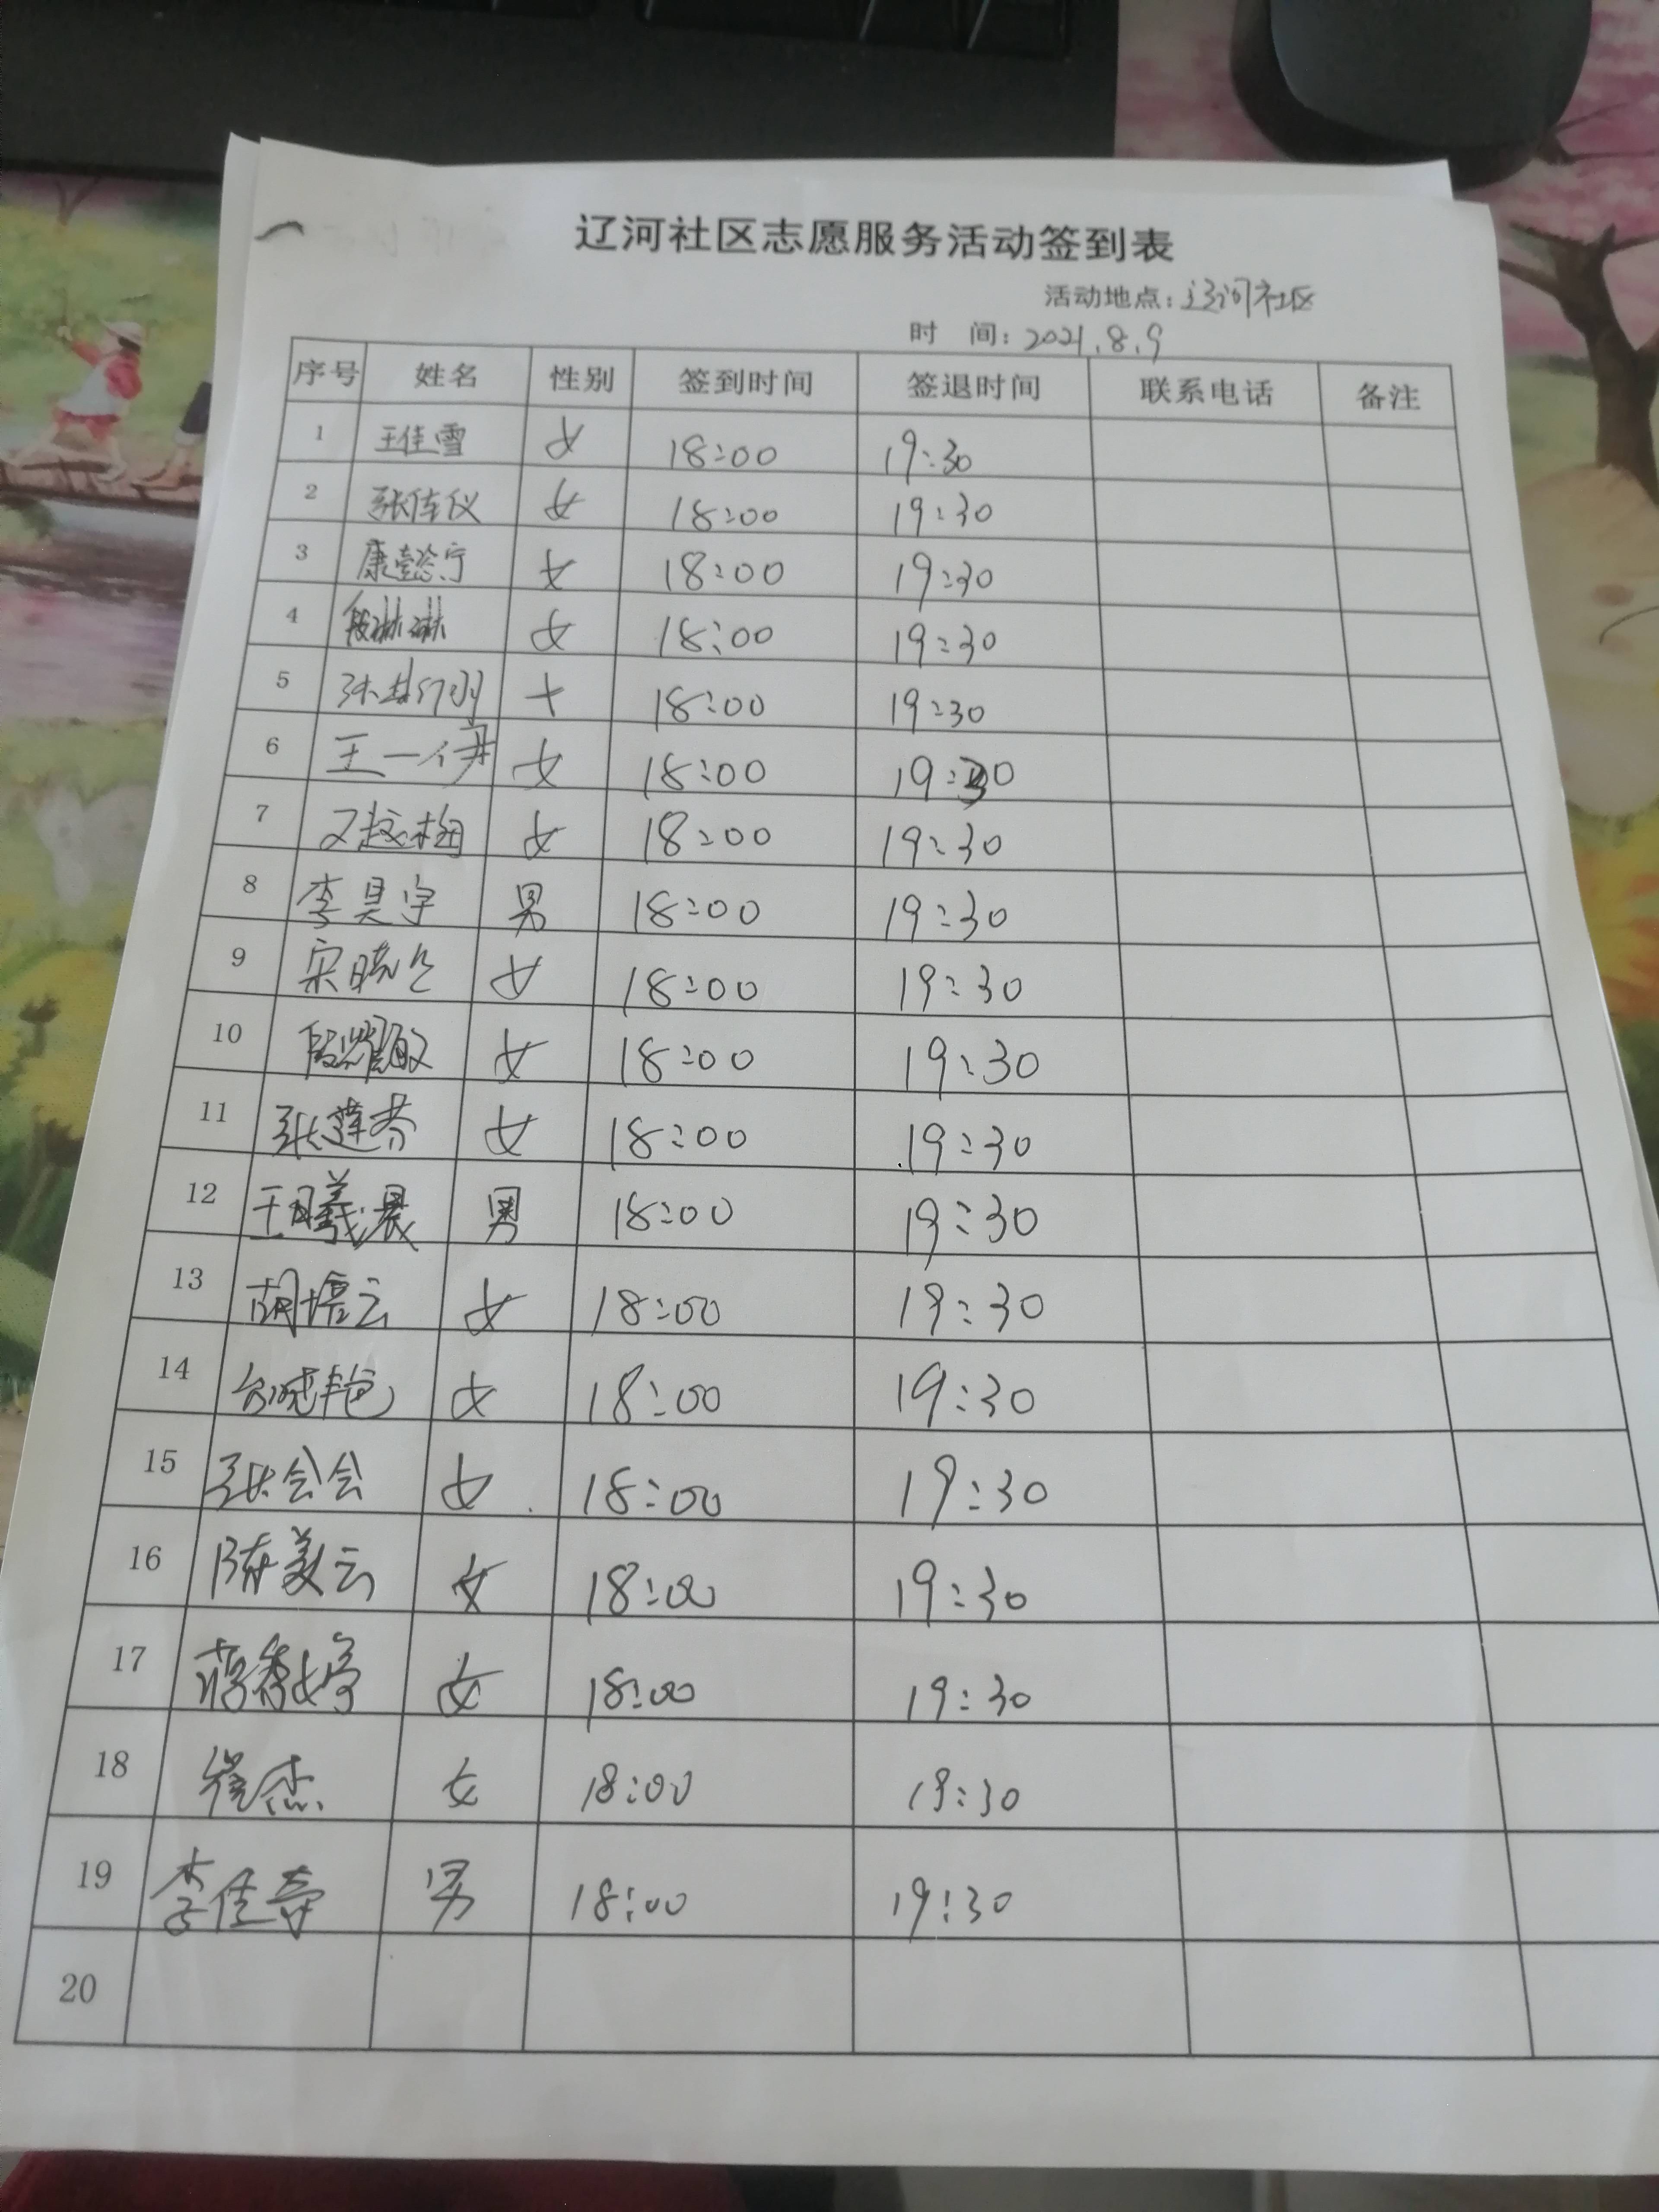 辽河社区志愿服务活动签到表
活动地点：辽河社区
时 间：2021.8.9
序号 姓名 性别 签到时间 签退时间 联系电话 备注
1 王佳雪 女 18:00 19:30
2 张佳仪 女 18:00 19:30
3 康懿宁 女 18:00 19:30
4 段琳琳 女 18:00 19:30
5 18:00 19:30
6 王一伊 女 18:00 19:30
7 女 18:00 19:30
8 李昊宇 男 18:00 19:30
9 宋晓 女 18:00 19:30
10 段 女 18:00 19:30
11 张莲芬 女 18:00 19:30
12 王曦晨 男 18:00 19:30
13 胡 云 女 18:00 19:30
14 女 18:00 19:30
15 张会会 女 18:00 19:30
16 陈美云 女 18:00 19:30
17 蒋秀婷 女 18:00 19:30
18 崔杰 女 18:00 19:30
19 李佳奇 男 18:00 19:30
20